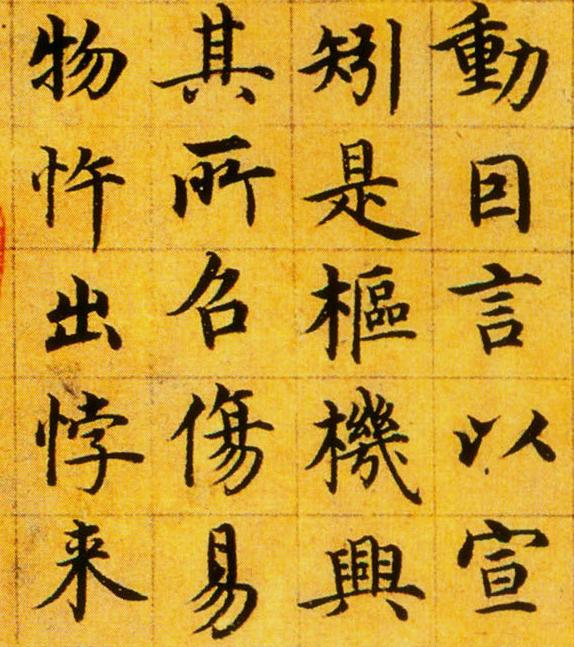 動因言以宣
矧是樞機興
其所召傷易
物忤出悖来